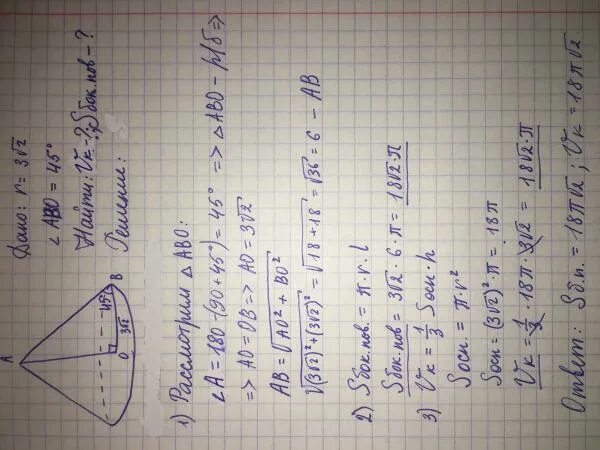 Дано: r = 3√2
∠ABO = 45°
Найти: Vк - ?; Sбок.пов - ?
Решение:
A
45°
B
O
3√2
1) Рассмотрим △ABO:
∠A = 180 - (90 + 45°) = 45° => △ABO - р/б =>
=> AO = OB => AO = 3√2
AB = √AO² + BO²
√(3√2)² + (3√2)² = √18 + 18 = √36 = 6 - AB
2) Sбок.пов. = π · r · l
Sбок.пов = 3√2 · 6 · π = 18√2 · π
3) Vк = 1/3 Sосн · h
Sосн = π · r²
Sосн = (3√2)² · π = 18π
Vк = 1/3 · 18π · 3√2 = 18√2 · π
Ответ: Sб.п. = 18π√2 ; Vк = 18π√2